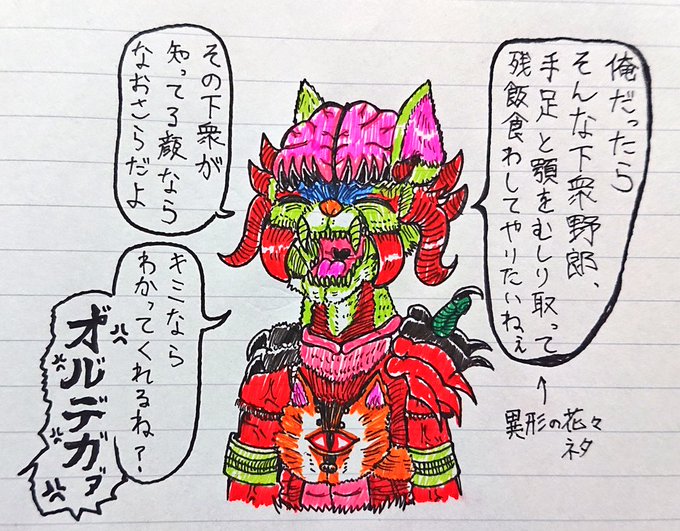 俺だったら
そんな下衆野郎、
手足と顎をむしり取って
残飯食わしてやりたいねぇ
↑
異形の花々
ネタ
その下衆が
知ってる顔なら
なおさらだよ
キミなら
わかってくれるね?
オルデガァ